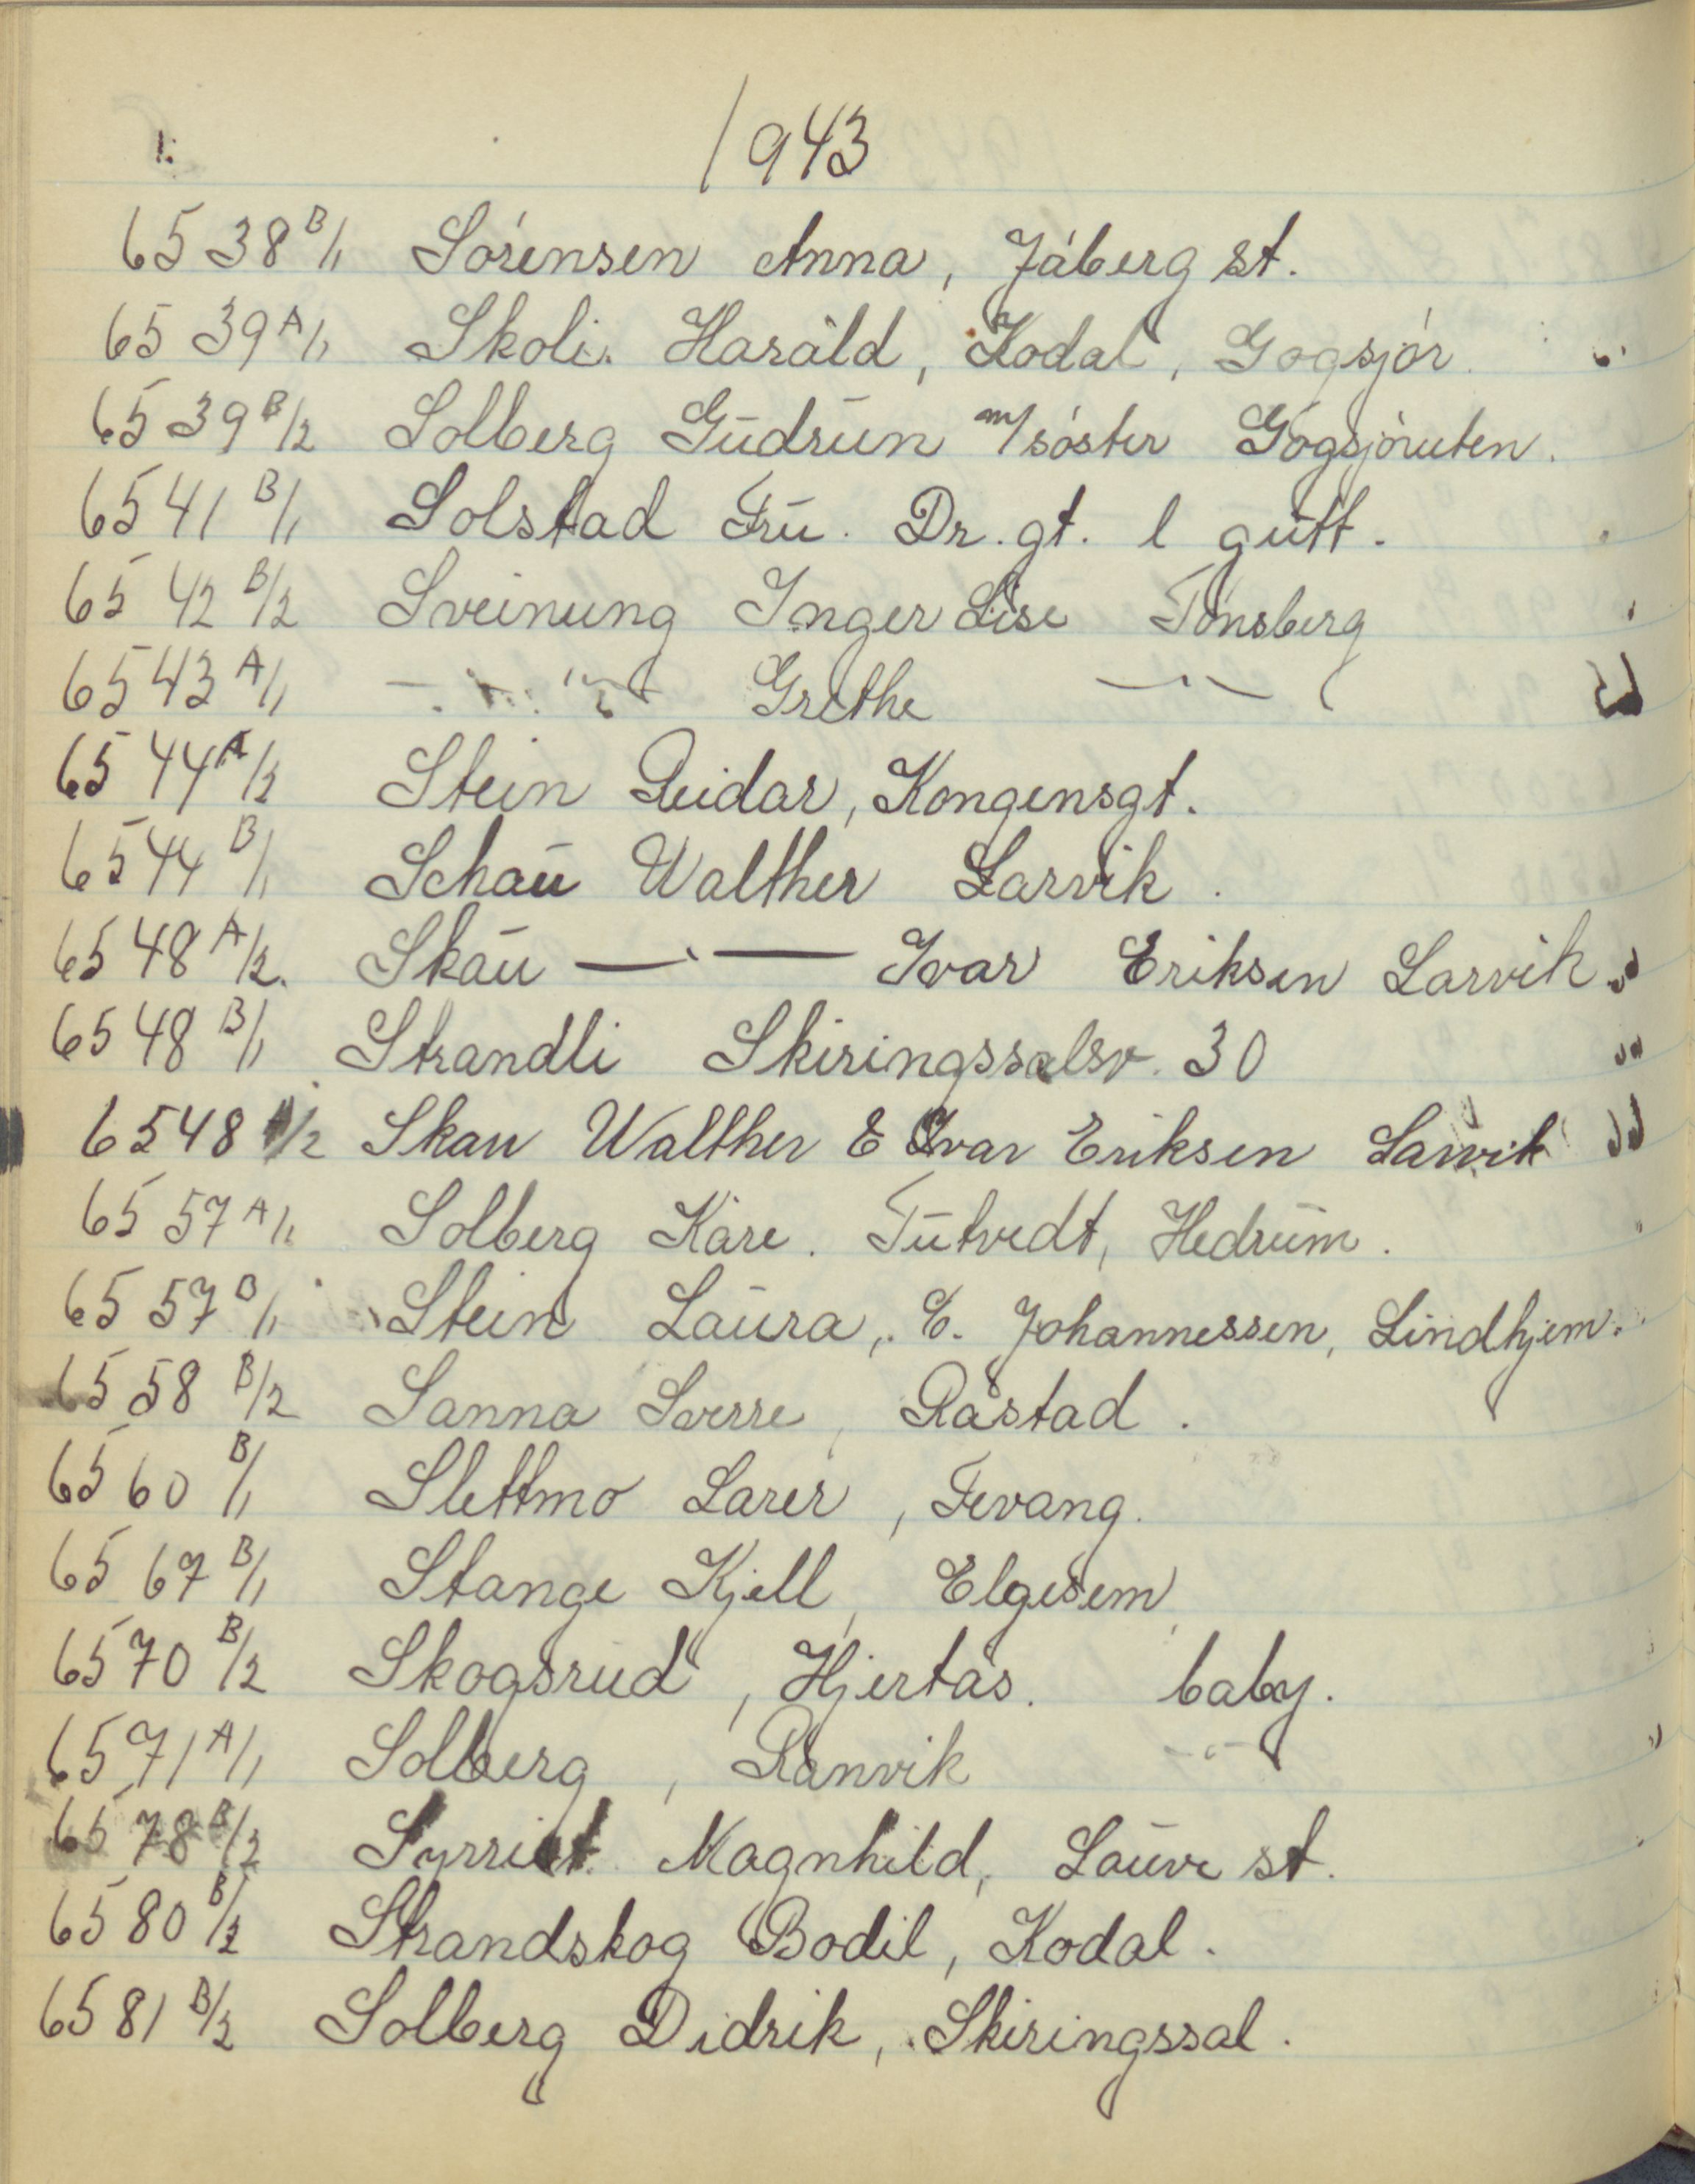 1943
6538 B/1 Sórensen Anna, Jåberg st.
6539 A/1 Skoli. Harald, Kodal, Gogsjór.
6539 B/2 Solberg Gudrun m/sóster Gogsjóruten.
6541 B/1 Solstad Fru. Dr. gt. 1 gutt.
6542 B/2 Sveinung Inger Lise Tónsberg
6543 A/1 — " — Grethe — " —
6544 A/2 Stein Reidar, Kongensgt.
6544 B/1 Schau Walther Larvik.
6548 A/2. Skau — " — Ivar Eriksen Larvik.
6548 B/1 Strandli Skiringssalsv. 30
6548 A/2 Skau Walther & Ivar Eriksen Larvik
6557 A/1 Solberg Kåre. Tutvedt, Hedrum.
6557 B/1 Stein Laura, E. Johannessen, Lindhjem.
6558 B/2 Sanna Sverre, Råstad.
6560 B/1 Slettmo Larer, Fevang.
6567 B/1 Stange Kjell, Elgesem
6570 B/2 Skogsrud, Hjertås. baby.
6571 A/1 Solberg, Ranvik — " —
6578 B/2 Magnhild, Lauve st.
6580 B/2 Strandskog Bodil, Kodal.
6581 B/2 Solberg Didrik, Skiringssal.